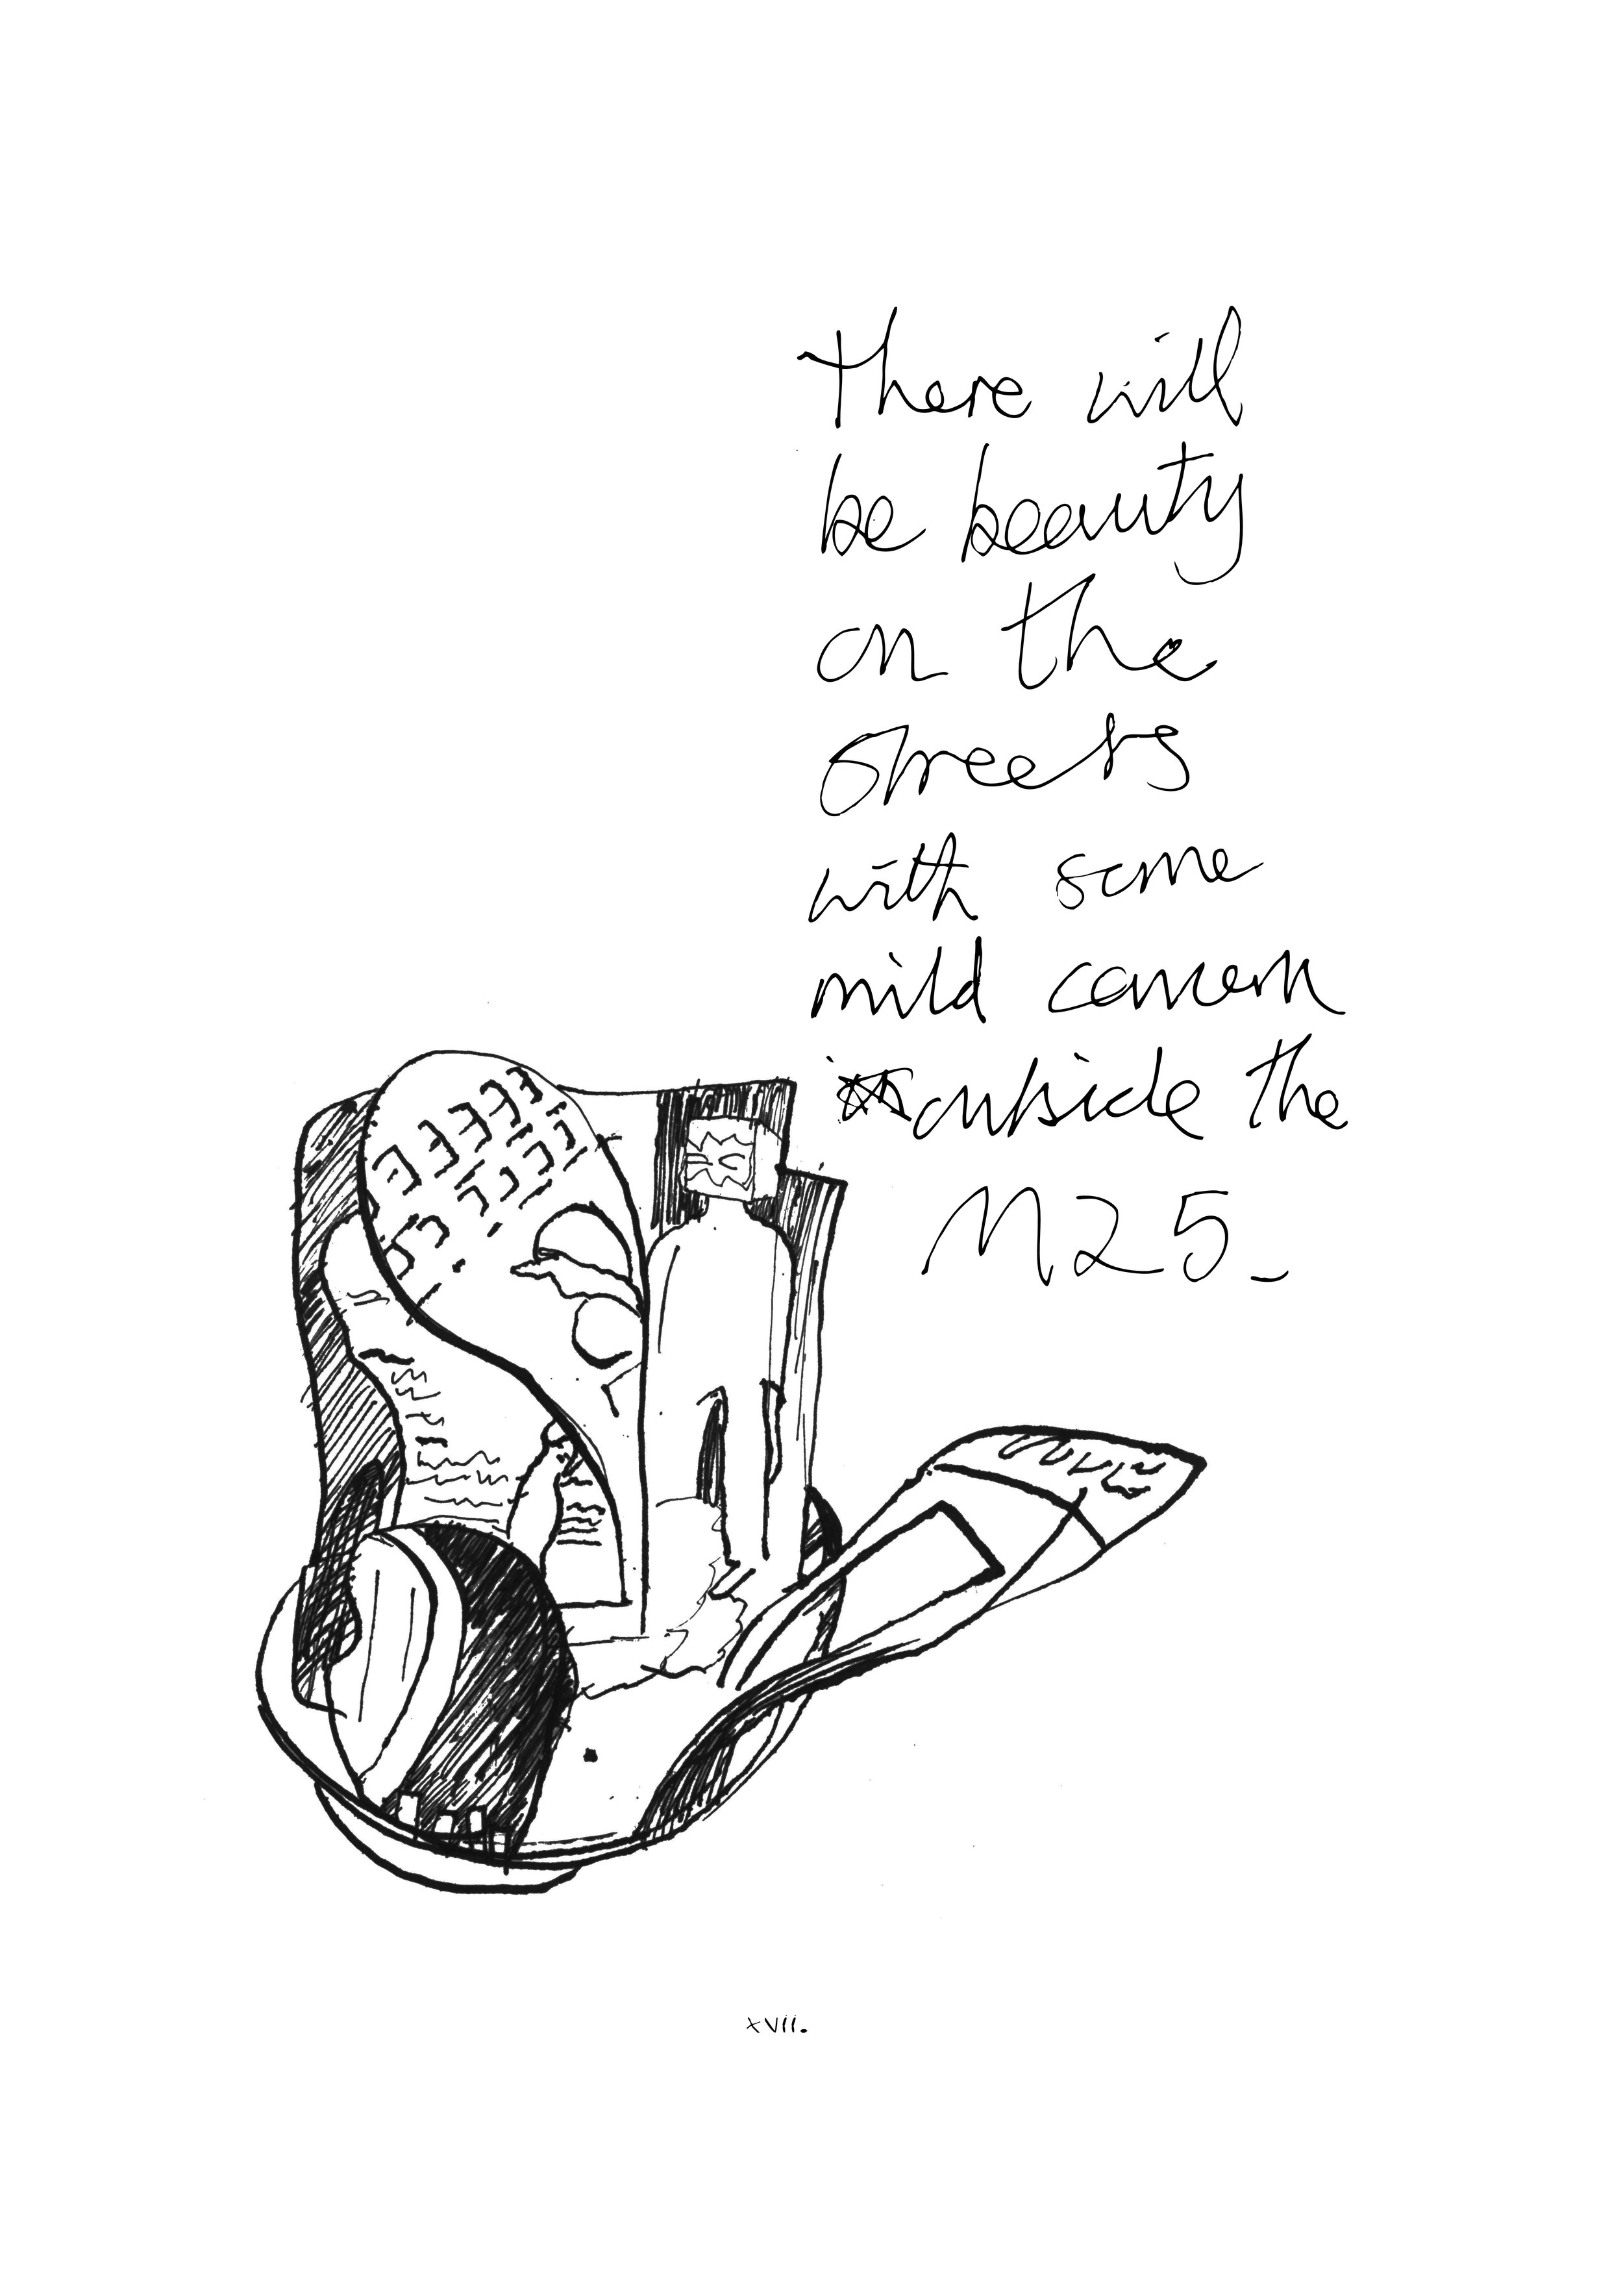 there will
be beauty
on the
streets
with some
mild concern
outside the
M25_
xvii.